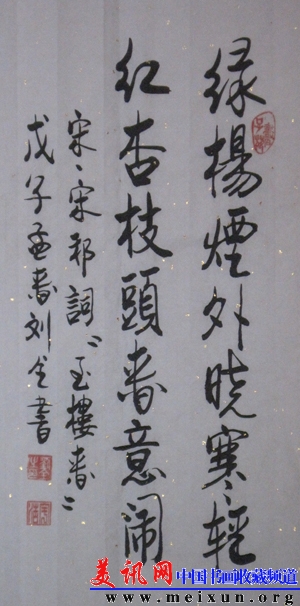 緑楊煙外晓寒輕
红杏枝頭春意闹
宋、宋祁詞〝玉樓春〞
戊子孟春刘書
美讯网 中国书画收藏频道
www.meixun.org